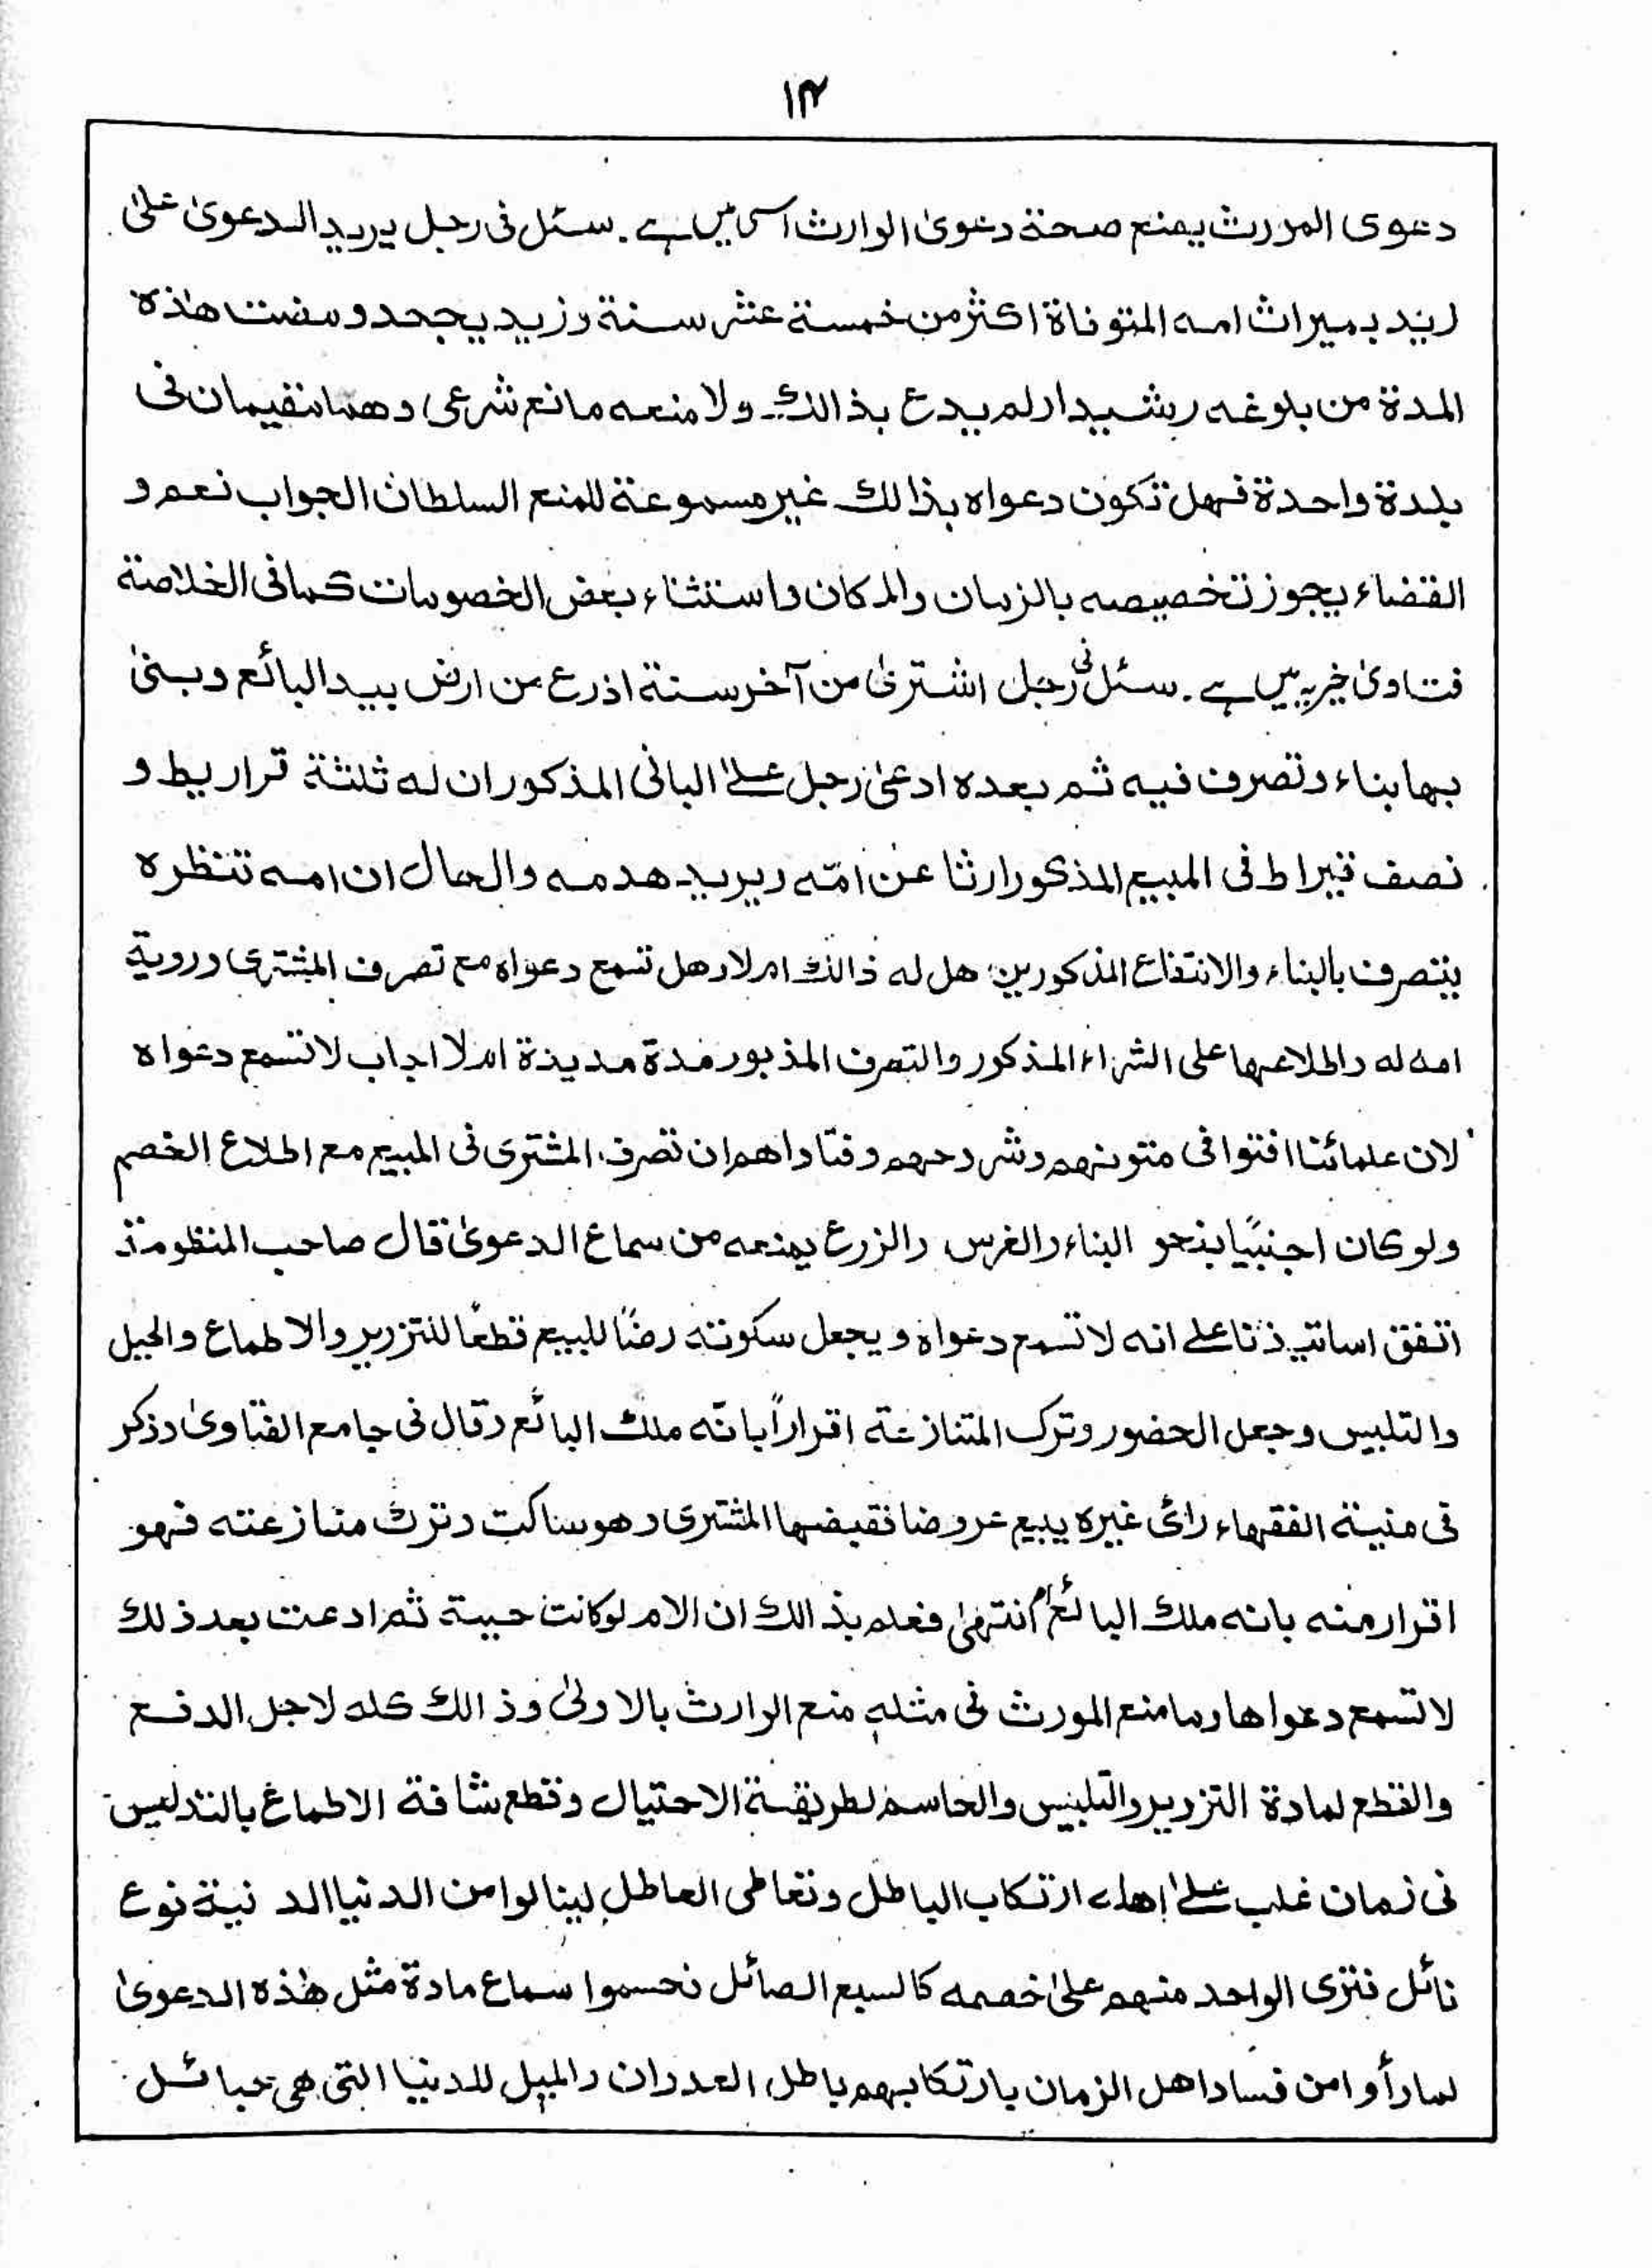 ۱۴
دعوی المورث یمنع صحة دعویٰ الوارث اسی میں ہے۔ سئل فی رجل یرید الدعویٰ علیٰ
زید بمیراث امه المتوفاة اکثر من خمسة عشر سنة وزید یجحد و مضت هٰذه
المدة من بلوغه رشیدا ولم یدع بذالك ولا منعه مانع شرعی و هما مقیمان فی
بلدة واحدة فهل تکون دعواه بذالك غیر مسموعة للمنع السلطان الجواب نعم و
القضاء یجوز تخصیصه بالزمان والمکان واستثناء بعض الخصومات کما فی الخلاصة
فتاویٰ خیریہ میں ہے۔ سئل فی رجل اشتریٰ من آخر ستة اذرع من ارض بید البائع وبنیٰ
بها بناء وتصرف فیه ثم بعده ادعیٰ رجل علیٰ البانی المذکور ان له ثلثة قراریط و
نصف قیراط فی المبیع المذکور ارثا عن امّه ویرید هدمه والحال ان امه تنظره
یتصرف بالبناء والانتفاع المذکورین هل له ذالك ام لا وهل تسمع دعواه مع تصرف المشتری ورویة
امه له واطلاعها علی الشراء المذکور والتصرف المذبور مدة مدیدة ام لا اجاب لا تسمع دعواه
لان علمائنا افتوا فی متونهم وشروحهم وفتاواهم ان تصرف المشتری فی المبیع مع اطلاع الخصم
ولو کان اجنبیًا بنحو البناء والغرس والزرع یمنعه من سماع الدعویٰ قال صاحب المنظومة
اتفق اساتیذنا علے انه لا تسمع دعواه و یجعل سکوته رضًا للبیع قطعًا للتزویر والاطماع والحیل
والتلبیس وجعل الحضور وترک المتنازعة اقراراً بانّه ملك البائع وقال فی جامع الفتاویٰ وذکر
فی منیة الفقهاء رائ غیره یبیع عروضا فقبضها المشتری وهو ساکت وترك منازعته فهو
اقرار منه بانه ملك البائع انتهیٰ فعلم بذالك ان الام لو کانت حیة ثم ادعت بعد ذلك
لا تسمع دعواها وما منع المورث فی مثله منع الوارث بالاولیٰ وذالك کله لاجل الدفع
والقطع لمادة التزویر والتلبیس والحاسم لطریقة الاحتیال وقطع شافة الاطماع بالتدلیس
فی زمان غلب علیٰ اهله ارتکاب الباطل وتعاطی العاطل لینالوا من الدنیا الدنیة نوع
نائل فتری الواحد منهم علیٰ خصمه کالسبع الصائل فحسموا سماع مادة مثل هٰذه الدعویٰ
لما رأوا من فساد اهل الزمان بارتکابهم باطل العدوان والمیل للدنیا التی هی حبائل